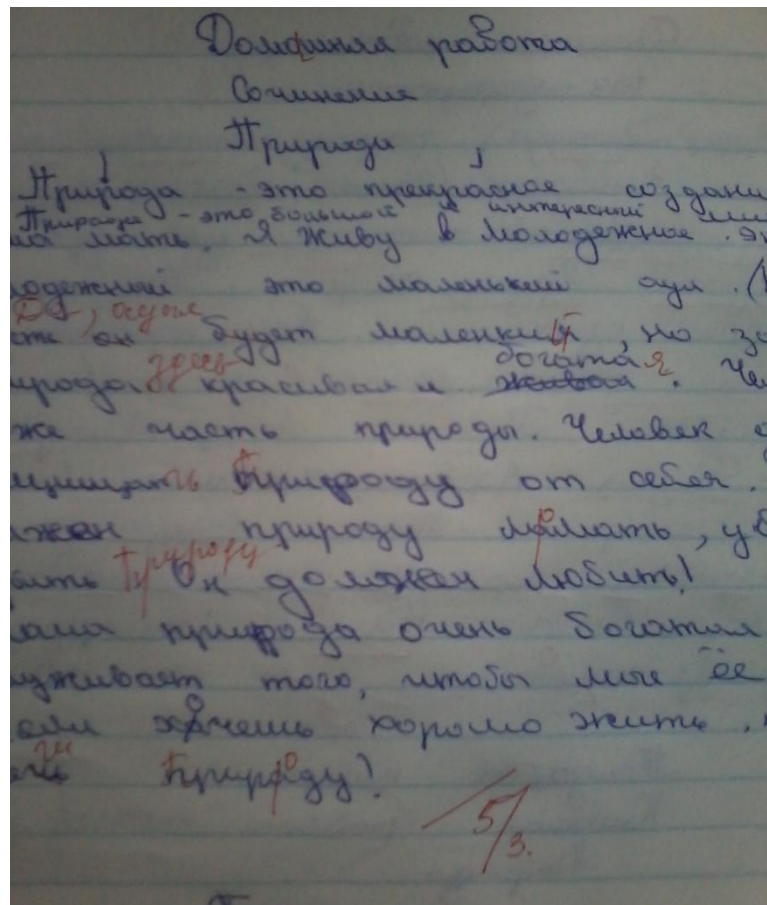 Домашняя работа
Сочинение
Природа
Природа - это прекрасное создани
Природа - это большой и интересный
мать. Я живу в Молодежное.
лодежный это маленький аул.
он будет маленкий, но за
рода здесь красивая и богатая. Че
же часть природы. Человек д
щищать природу от себя.
лжен природу ломать, уб
бить природу Он должен любить!
аша природа очень богатая
луживает того, чтобы мы её
если хочешь хорошо жить,
ги природу!
5/3.